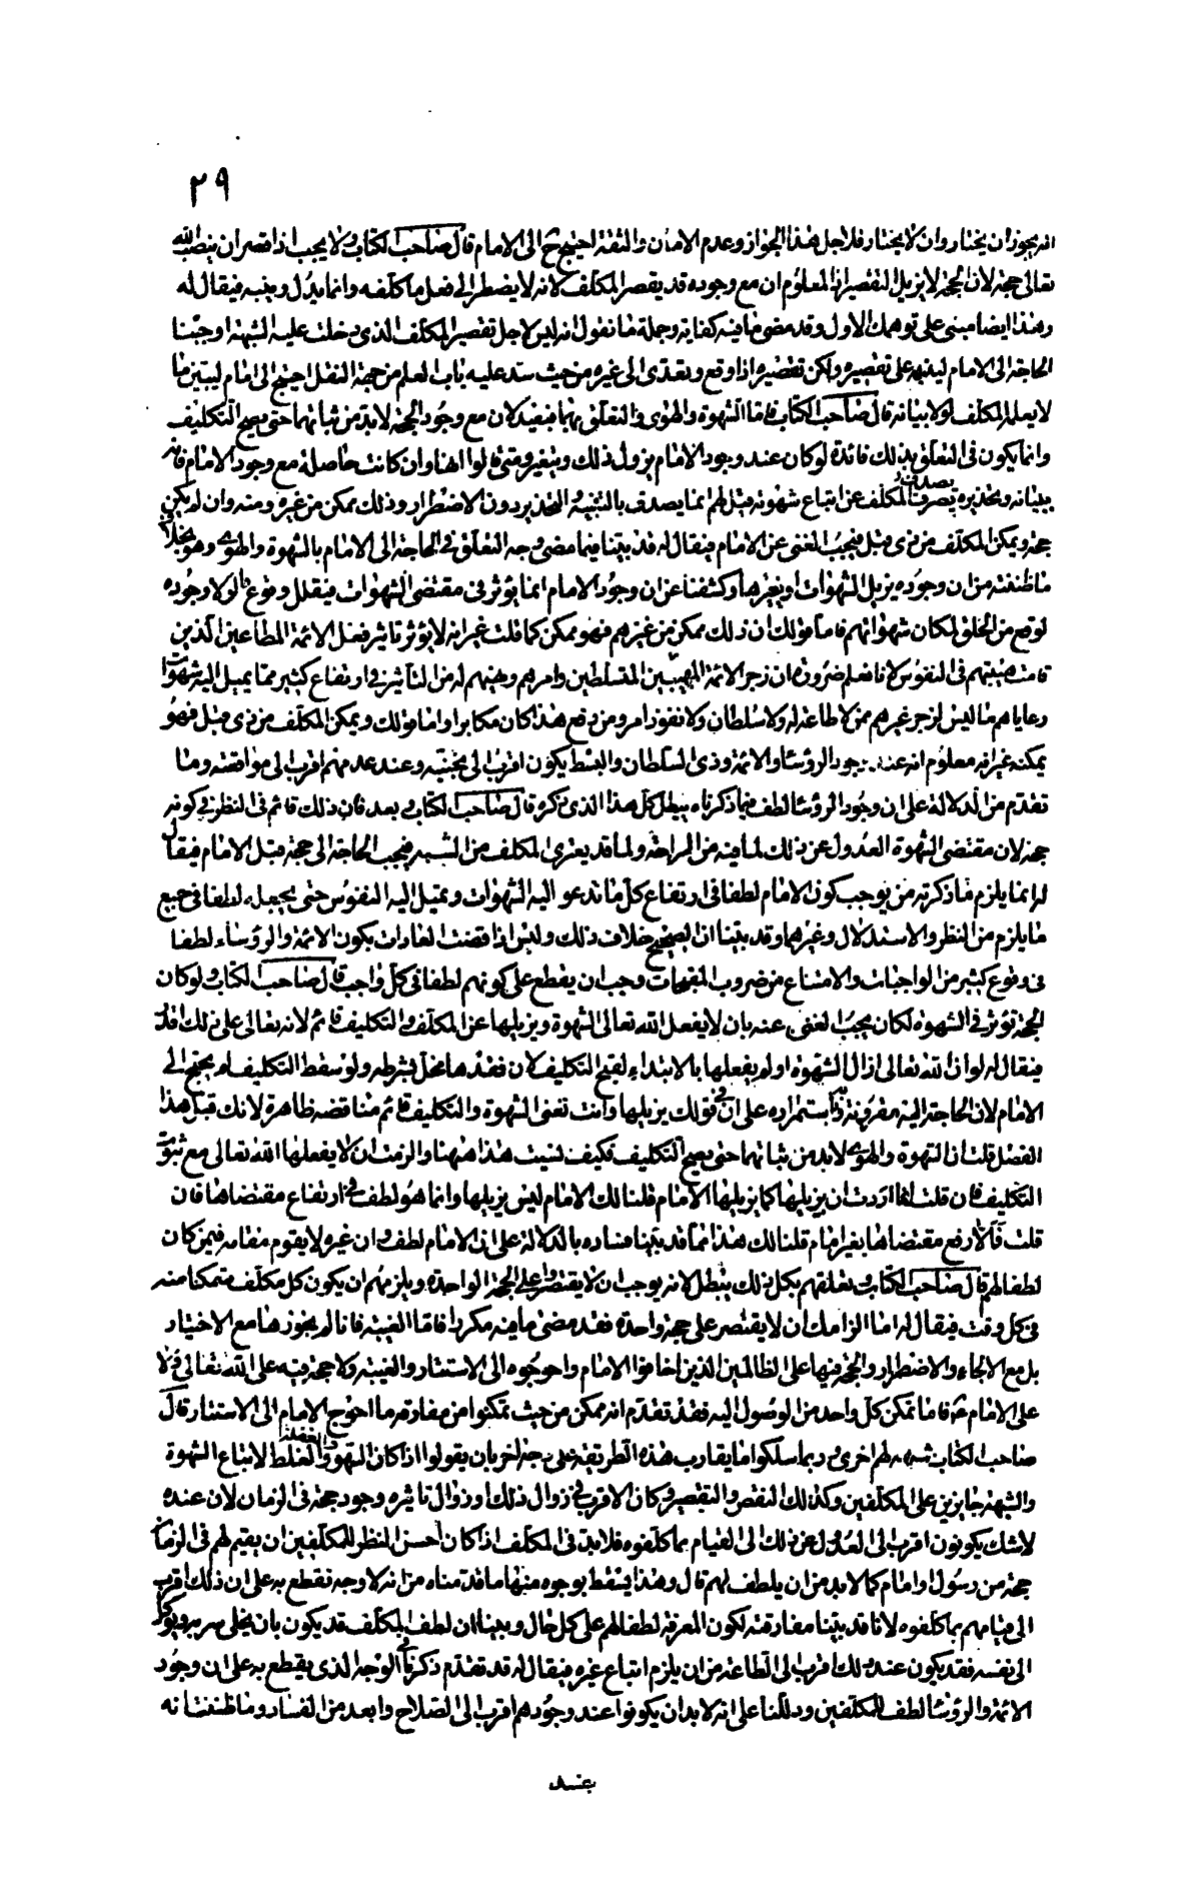 ٢٩
انه يجوز ان يختار وان لا يختار فلاجل هذا الجواز وعدم الامان والثقة احتيج الى الامام قال صاحب الكتاب ولا يجب اذا قصر ان ينصب الله
تعالى حجة لان الحجة لا يزيل التقصير اذ المعلوم ان مع وجوده قد يقصر المكلف لانه لا يضطر الى فعل ما كلفه وانما يدل وينبه فيقال له
وهذا ايضا مبنى على توهمك الاول وقد مضى ما فيه كفاية وجملة ما نقوله انه ليس لاجل تقصير المكلف الذى دخلت عليه الشبهة اوجبنا
الحاجة الى الامام لينبهه على تقصيره ولكن تقصيره اذا وقع وتعدى الى غيره من حيث سد عليه باب العلم من جهة النقل احتيج الى امام ليبين ما
لا يعلمه المكلف لولا بيانه قال صاحب الكتاب فاما الشهوة والهوى والتعلق بهما فبعيد لان مع وجود الحجة لا بد من ثباتهما حتى يصح التكليف
وانما يكون فى التعلق بذلك فائدة لو كان عند وجود الامام يزول ذلك ويتغير ومتى قالوا انها وان كانت حاصلة مع وجود الامام فانه
ببيانه وتحذيره يصرف المكلف عن اتباع شهوته قيل لهم انما يصدف بالتنبيه والتحذير دون الاضطرار وذلك ممكن من غيره ومنه وان لم يكن
حجة ويمكن المكلف من ذى قبل فيجب الغنى عن الامام فيقال له قد بينا فيما مضى وجه التعلق فى الحاجة الى الامام بالشهوة والهوى وهو بخلاف
ما ظننته من ان وجوده يزيل الشهوات او يغيرها وكشفنا عن ان وجود الامام انما يؤثر فى مقتضى الشهوات فيقلل وقوع ما لولا وجوده
لوقع من الخلق لمكان شهواتهم فاما قولك ان ذلك ممكن من غيرهم فهو ممكن كما قلت غير انه لا يؤثر تاثير فعل الائمة المطاعين الذين
قامت هيبتهم فى النفوس لانا نعلم ضرورة ان زجر الائمة المهيبين المتسلطين وامرهم ونهيهم له من التاثير فى ارتفاع كثير مما يميل اليه شهوات
رعاياهم ما ليس لزجر غيرهم ممن لا طاعة له ولا سلطان ولا نفوذ امر ومن دفع هذا كان مكابرا واما قولك ويمكن المكلف من ذى قبل فهو
يمكنه غير انه معلوم انه عند وجود الرؤسا والائمة وذى السلطان والبسط يكون اقرب الى تجنبه وعند عدمهم اقرب الى مواقعته وما
تقدم من الدلالة على ان وجود الرؤسا لطف فيما ذكرناه يبطل كل هذا الذى ذكره قال صاحب الكتاب وبعد فان ذلك قائم فى النظر فى كونه
حجة لان مقتضى الشهوة العدول عن ذلك لما فيه من الراحة ولما قد يعترى المكلف من الشبه فيجب الحاجة الى حجة قبل الامام فيقال
له انما يلزم ما ذكرته من يوجب كون الامام لطفا فى ارتفاع كل ما تدعو اليه الشهوات وتميل اليه النفوس حتى يجعله لطفا فى جميع
ما يلزم من النظر والاستدلال وغيرهما وقد بينا ان الصحيح خلاف ذلك وليس اذا قضت العادات بكون الائمة والرؤساء لطفا
فى وقوع كثير من الواجبات والامتناع من ضروب المقبحات وجب ان يقطع على كونهم لطفا فى كل واجب قال صاحب الكتاب ولو كان
الحجة تؤثر فى الشهوة لكان يجب الغنى عنه بان لا يفعل الله تعالى الشهوة ويزيلها عن المكلف والتكليف قائم لانه تعالى على ذلك اقدر
فيقال له لو ان الله تعالى ازال الشهوة او لم يفعلها بالابتداء لقبح التكليف لان فقدها مخل بشرطه ولو سقط التكليف لم يحتج الى
الامام لان الحاجة اليه مقرونة باستمراره على ان فى قولك يزيلها وانت تعنى الشهوة والتكليف قائم مناقضة ظاهرة لانك قبل هذا
الفصل قلت ان الشهوة والهوى لا بد من ثباتهما حتى يصح التكليف فكيف نسيت هذا ههنا والزمت ان لا يفعلها الله تعالى مع ثبوت
التكليف فان قلت انما اردت ان يزيلها كما يزيلها الامام قلنا لك الامام ليس يزيلها وانما هو لطف فى ارتفاع مقتضاها فان
قلت فالا رفع مقتضاها بغير امام قلنا لك هذا انما قد بينا فساده بالدلالة على ان الامام لطف وان غيره لا يقوم مقامه فيمن كان
لطفا لهم قال صاحب الكتاب وتعلقهم بكل ذلك يبطل لانه يوجب ان لا يقتصروا على الحجة الواحدة ويلزمهم ان يكون كل مكلف متمكنا منه
فى كل وقت فيقال له اما الزامك ان لا يقتصر على حجة واحدة فقد مضى ما فيه مكررا فاما الغيبة فانا لم يجوزها مع الاختيار
بل مع الالجاء والاضطرار والحجة فيها على الظالمين الذين اخافوا الامام واحوجوه الى الاستتار والغيبة ولا حجة فيه على الله تعالى ولا
على الامام ع فاما تمكن كل واحد من الوصول اليه فقد تقدم انه ممكن من حيث تمكنوا من مفارقة ما احوج الامام الى الاستتار قال
صاحب الكتاب شبهة لهم اخرى وربما سلكوا ما يقارب هذه الطريقة على وجه اخر بان يقولوا اذا كان السهو والغفلة والغلط لاتباع الشهوة
والشبهة جايزين على المكلفين وكذلك النقص والتقصير وكان الاقرب فى زوال ذلك او زوال تاثيره وجود حجة فى الزمان لان عنده
لا شك يكونون اقرب الى العدول عن ذلك الى القيام بما كلفوه فلابد فى المكلف اذا كان احسن النظر للمكلفين ان يقيم لهم فى الزمان
حجة من رسول او امام كما لا بد من ان يلطف لهم قال وهذا يسقط بوجوه منها ما قدمناه من انه لا وجه نقطع به على ان ذلك اقرب
الى قيامهم بما كلفوه لانا قد بينا مفارقته لكون المعرفة لطفا لهم على كل حال وبينا ان لطف المكلف قد يكون بان يخلى سربه ويوكل
الى نفسه فقد يكون عند ذلك اقرب الى الطاعة من ان يلزم اتباع غيره فيقال له قد تقدم ذكرنا فى الوجه الذى يقطع به على ان وجود
الائمة والرؤسا لطف للمكلفين ودللنا على انه لا بد ان يكونوا عند وجودهم اقرب الى الصلاح وابعد من الفساد وما ظنناه انه
عند